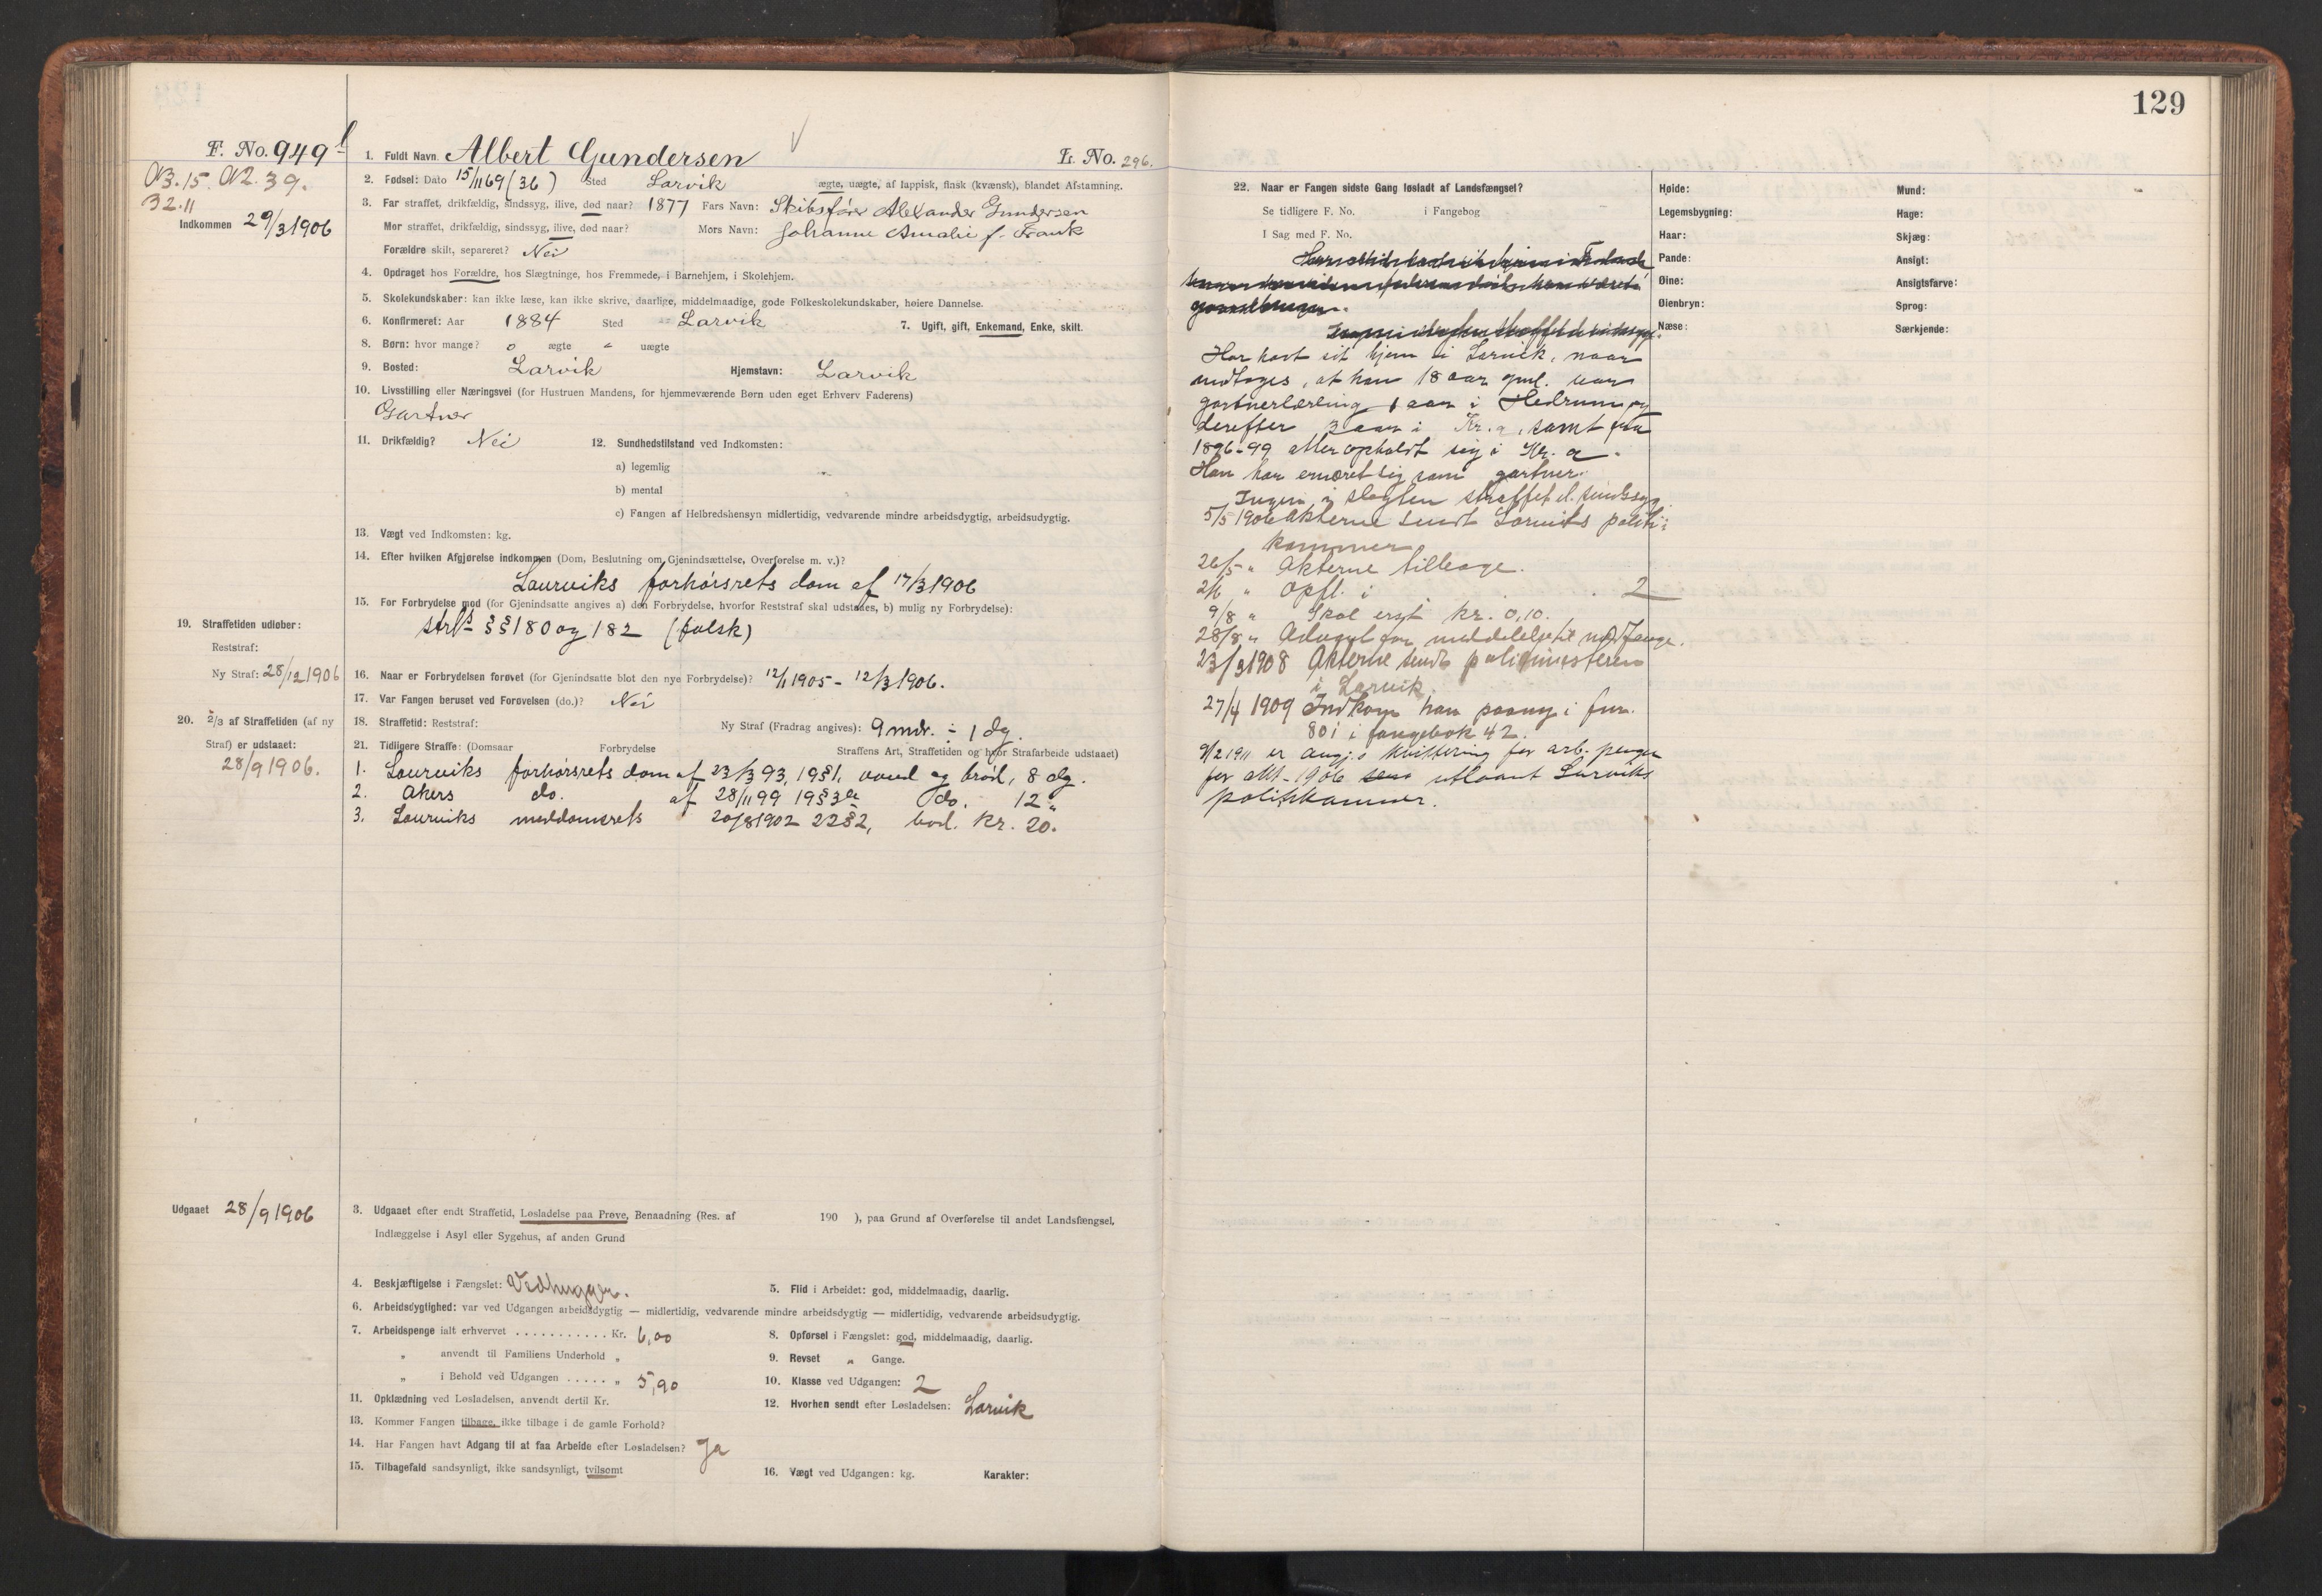 129
F. No. 949
A3.15. A2.39.
32.11
Indkommen 29/3 1906
1. Fuldt Navn Albert Gundersen L. No. 296.
2. Fødsel: Dato 15/11 69 (36) Sted Larvik ægte, uægte, af lappisk, finsk (kvænsk), blandet Afstamning.
3. Far straffet, drikfældig, sindssyg, ilive, død naar? 1877 Fars Navn: Skibsfører Alexander Gundersen
Mor straffet, drikfældig, sindssyg, ilive, død naar? Mors Navn: Johanne Amalie f. Frank
Forældre skilt, separeret? Nei
4. Opdraget hos Forældre, hos Slægtninge, hos Fremmede, i Barnehjem, i Skolehjem.
5. Skolekundskaber: kan ikke læse, kan ikke skrive, daarlige, middelmaadige, gode Folkeskolekundskaber, høiere Dannelse.
6. Konfirmeret: Aar 1884 Sted Larvik 7. Ugift, gift, Enkemand, Enke, skilt.
8. Børn: hvor mange? 0 ægte " uægte
9. Bosted: Larvik Hjemstavn: Larvik
10. Livsstilling eller Næringsvei (for Hustruen Mandens, for hjemmeværende Børn uden eget Erhverv Faderens)
Gartner
11. Drikfældig? Nei 12. Sundhedstilstand ved Indkomsten:
a) legemlig
b) mental
c) Fangen af Helbredshensyn midlertidig, vedvarende mindre arbeidsdygtig, arbeidsudygtig.
13. Vægt ved Indkomsten: kg.
14. Efter hvilken Afgjørelse indkommen (Dom, Beslutning om Gjenindsættelse, Overførelse m. v.)?
Laurviks forhørsrets dom af 17/3 1906
15. For Forbrydelse mod (for Gjenindsatte angives a) den Forbrydelse, hvorfor Reststraf skal udstaaes, b) mulig ny Forbrydelse):
strl. §§ 180 og 182 (falsk)
19. Straffetiden udløber:
Reststraf:
Ny Straf: 28/12 1906
16. Naar er Forbrydelsen forøvet (for Gjenindsatte blot den nye Forbrydelse)? 12/11905 - 12/3 1906.
17. Var Fangen beruset ved Forøvelsen (do.)? Nei
20. 2/3 af Straffetiden (af ny
Straf) er udstaaet:
28/9 1906.
18. Straffetid: Reststraf: Ny Straf (Fradrag angives): 9 mdr. ÷ 1 dg.
21. Tidligere Straffe: (Domsaar Forbrydelse Straffens Art, Straffetiden og hvor Strafarbeide udstaaet)
1. Laurviks forhørsrets dom af 23/3 93, 19§1, vand og brød, 8 dg.
2. Akers do. af 28/11 99 19§3 do. 12 "
3. Laurviks meddomsrets 20/8 1902 22§2, bod. kr. 20.
Udgaaet 28/9 1906
3. Udgaaet efter endt Straffetid, Løsladelse paa Prøve, Benaadning (Res. af 190 ), paa Grund af Overførelse til andet Landsfængsel,
Indlæggelse i Asyl eller Sygehus, af anden Grund
4. Beskjæftigelse i Fængslet: Vedhugger. 5. Flid i Arbeidet: god, middelmaadig, daarlig.
6. Arbeidsdygtighed: var ved Udgangen arbeidsdygtig — midlertidig, vedvarende mindre arbeidsdygtig — midlertidig, vedvarende arbeidsudygtig.
7. Arbeidspenge ialt erhvervet . . . . . . . . . . . Kr. 6,00 8. Opførsel i Fængslet: god, middelmaadig, daarlig.
" anvendt til Familiens Underhold " 9. Revset " Gange.
" i Behold ved Udgangen . . . . . " 5,90 10. Klasse ved Udgangen: 2
11. Opklædning ved Løsladelsen, anvendt dertil Kr. 12. Hvorhen sendt efter Løsladelsen: Larvik
13. Kommer Fangen tilbage, ikke tilbage i de gamle Forhold?
14. Har Fangen havt Adgang til at faa Arbeide efter Løsladelsen? Ja
15. Tilbagefald sandsynligt, ikke sandsynligt, tvilsomt 16. Vægt ved Udgangen: kg. Karakter:
22. Naar er Fangen sidste Gang løsladt af Landsfængsel?
Se tidligere F. No. i Fangebog
I Sag med F. No.
Har havt sit hjem i Larvik, naar
undtages, at han 18 aar gml. var
gartnerlærling 1 aar i Hedrum og
derefter 3 aar i Kr.a, samt fra
1896-99 atter opholdt sig i Kr. a.
Han har ernæret sig som gartner.
Ingen i slegten straffet el. sindssyg
5/5 1906 Akterne sendt Larviks politi-
kammer
26/5 " Akterne tilbage.
2/6 " opfl. i . . 2
9/8 " Skal erst. kr. 0,10.
28/8 " Advaret for meddelelse til medfange.
23/3 1908 Akterne sendt politimesteren
i Larvik.
27/4 1909 Indkom han paany i fnr.
801 i fangebok 42.
9/2 1911 er angj. kvittering for arb. penger
for utlaant Larviks
politikammer.
Høide:
Legemsbygning:
Haar:
Pande:
Øine:
Øienbryn:
Næse:
Mund:
Hage:
Skjæg:
Ansigt:
Ansigtsfarve:
Sprog:
Særkjende: